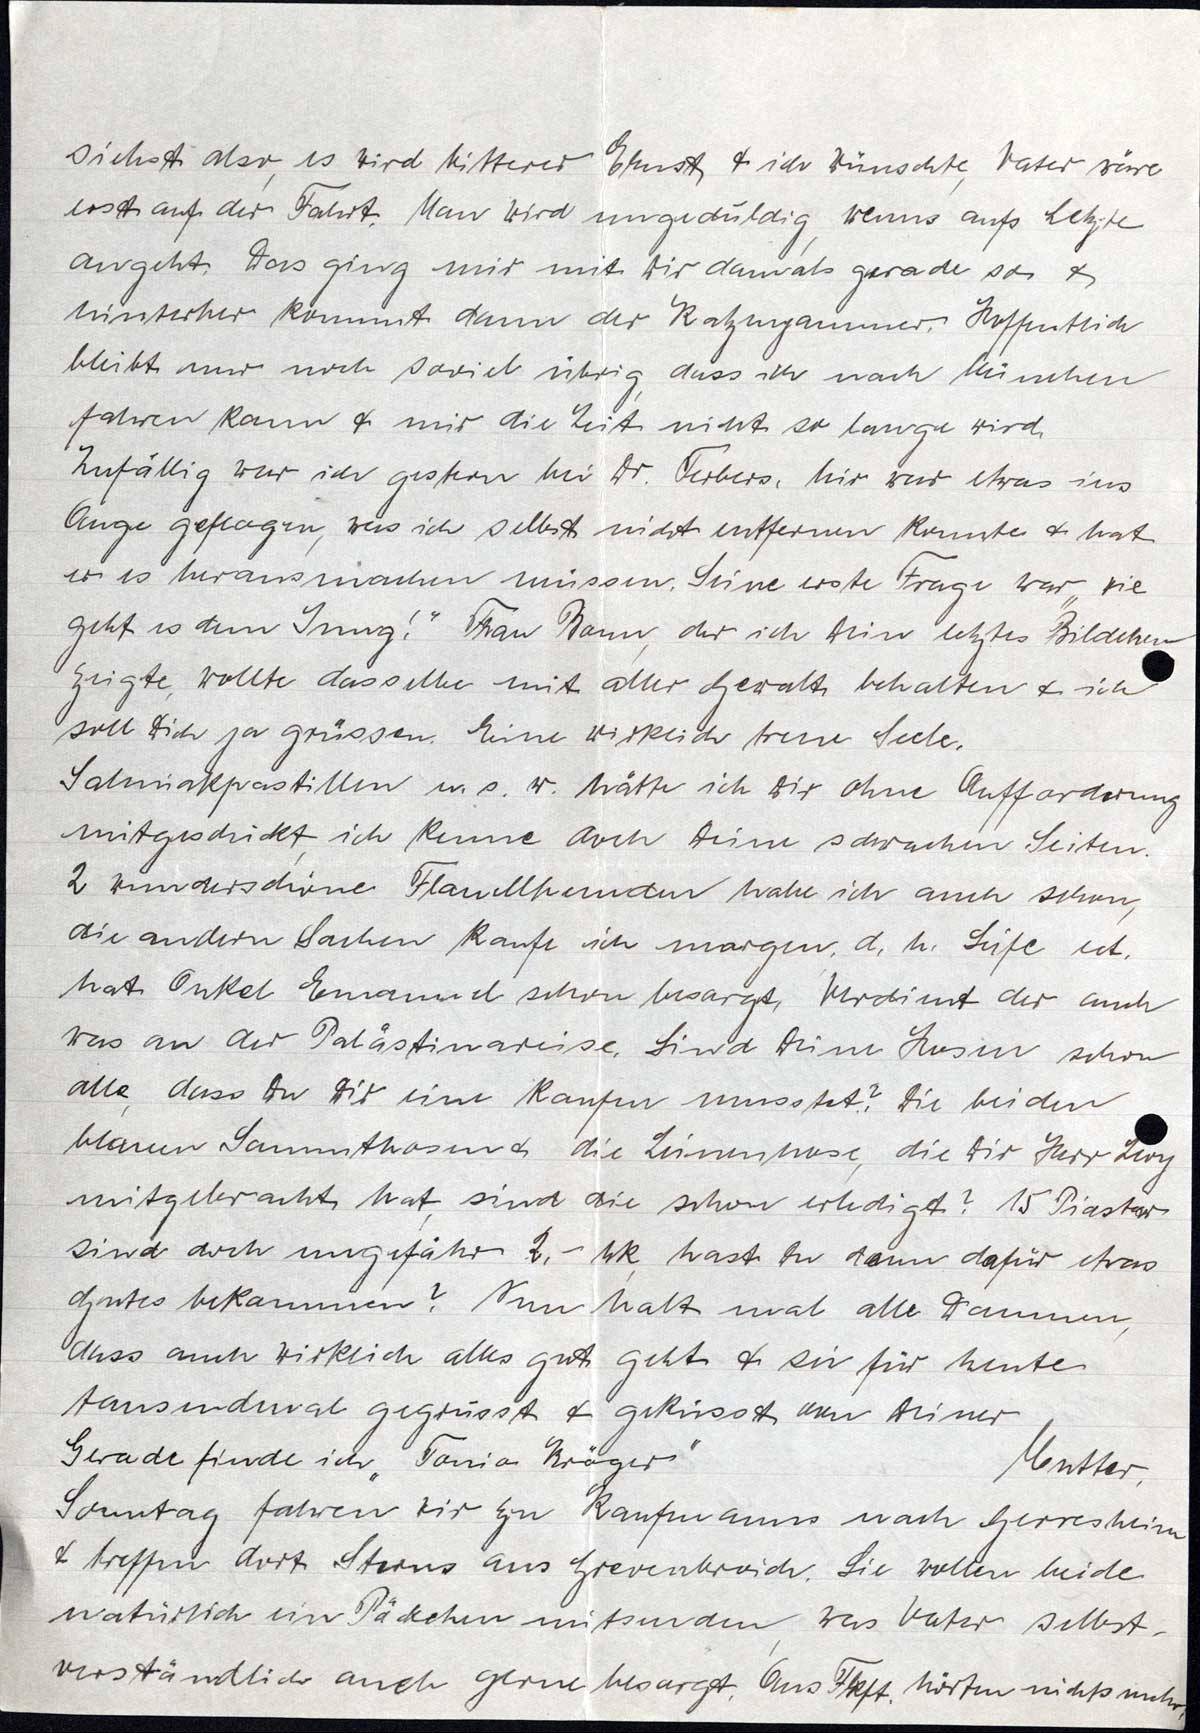 siehst also, es wird bitterer Ernst, & ich wünschte, Vater wäre
erst auf der Fahrt. Man wird ungeduldig, wenns aufs Letzte
angeht. Das ging mir mit Dir damals gerade so &
hinterher kommt dann der Katzenjammer. Hoffentlich
bleibt nur noch soviel übrig, dass ich nach München
fahren kann & mir die Zeit nicht so lange wird.
Zufällig war ich gestern bei Dr. Ferbers. Mir war etwas ins
Auge geflogen, was ich selbst nicht entfernen konnte & hat
er es herausmachen müssen. Seine erste Frage war „wie
geht es dem Jung!" Frau Bonn, der ich Dein letztes Bildchen
zeigte, wollte dasselbe mit aller Gewalt behalten & ich
soll Dich ja grüssen. Eine wirklich treue Seele.
Salmiakpastillen u. s. w. hätte ich Dir ohne Aufforderung
mitgeschickt, ich kenne doch Deine schwachen Seiten.
2 wunderschöne Flanellhemden habe ich auch schon,
die andern Sachen kaufe ich morgen, d. h. Seife ect.
hat Onkel Emanuel schon besorgt. Verdient der auch
was an der Palästinareise. Sind Deine Hosen schon
alle, dass Du Dir eine kaufen musstet? Die beiden
blauen Sammthosen & die Leinenhose, die Dir Herr Levy
mitgebracht hat, sind die schon erledigt? 15 Piaster
sind doch ungefähr 2.- Mk, hast Du denn dafür etwas
Gutes bekommen? Nun halt mal alle Daumen,
dass auch wirklich alles gut geht & sei für heute
tausendmal gegrüsst & geküsst von Deiner
Mutter.
Gerade finde ich „Tonio Kröger"
Sonntag fahren wir zu Kaufmanns nach Gerresheim
& treffen dort Sterns aus Grevenbroich. Sie wollen beide
natürlich ein Päckchen mitsenden, was Vater selbst-
verständlich auch gerne besorgt. Aus Fkft. hörten nichts mehr.